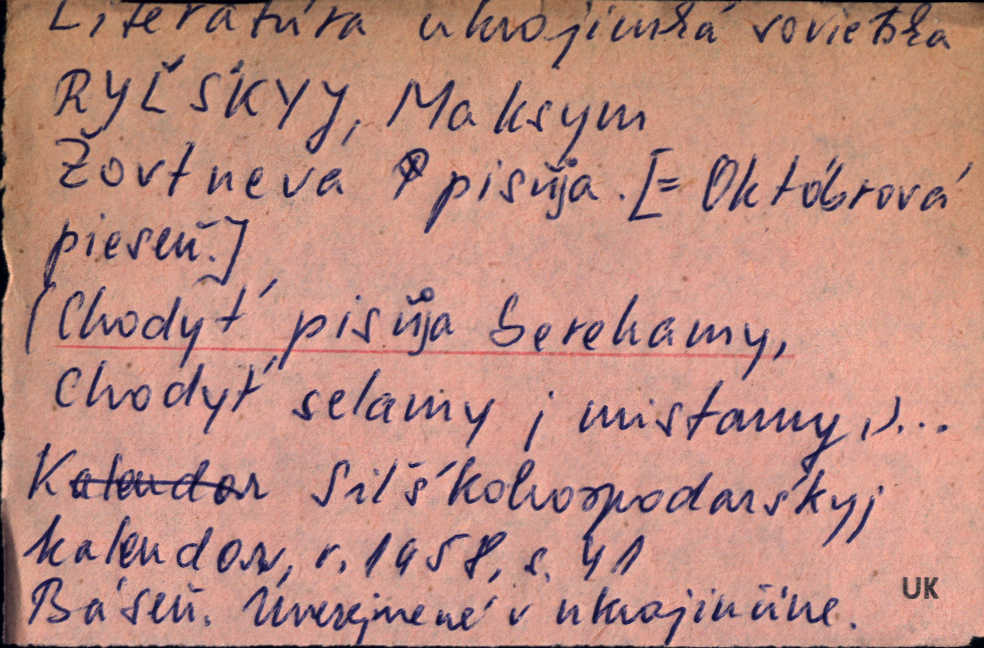 Literatúra ukrajinská sovietska
RYĽŚKYJ, Maksym
Žovtneva pisńja. [= Októbrová
pieseň.]
(Chodyť pisńja berehamy,
Chodyť selamy j mistamy,)...
Kalendar Siľśkohospodarśkyj
kalendar, r. 1958, s. 41
Báseň. Uverejnené v ukrajinčine.
UK